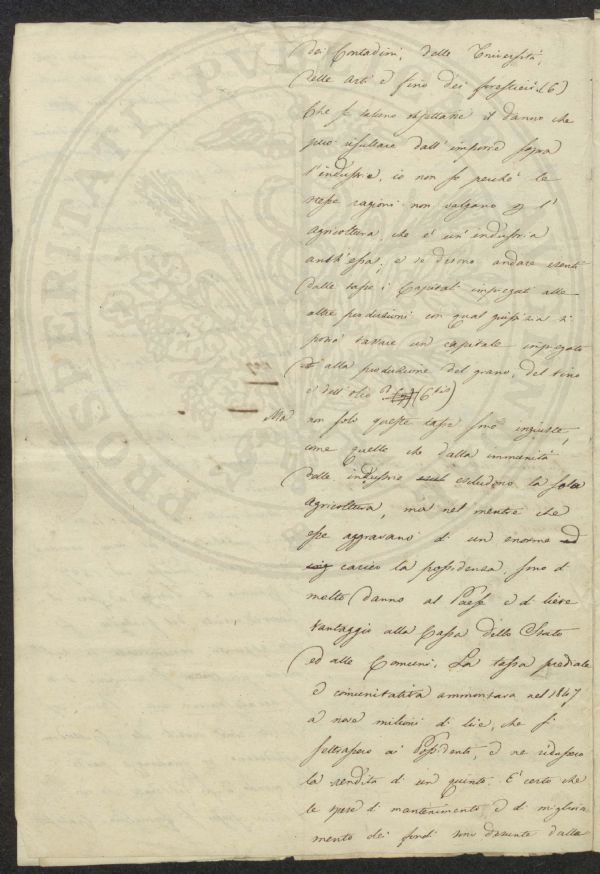 dei Contadini, delle Università,
delle Arti e fino dei forestieri. (6)
Che se taluno rispettasse il danno che
può risultare dall'imporre sopra
l'industria, io non so perché le
stesse ragioni non valgano p l'
agricoltura, che è un'industria
anch'essa; e se devono andare esenti
dalle tasse i Capitali impregati alle
altre produzioni con qual giustizia si
potrà tassare un capitale impregato
alla produzione del grano, del vino
e dell'olio (6 bis)
Ma non solo queste tasse sono ingiuste,
come quelle che dalla immunità
delle industrie escludono la sola
agricoltura, ma nel mentre che
esse aggravano di un enorme
carico la possidenza, sono di
molto danno al Paese e di lieve
vantaggio alla Cassa dello Stato
ed alle Comuni. La tassa prediale
e comunitativa ammontava nel 1847
a nove milioni di lire, che si
sottrassero ai Possidenti, e ne ridussero
la rendita di un quinto. È certo che
le spese di mantenimento e di migliora
mento dei fondi sono desunte dalla
PROSPERITATI PVBLICAE